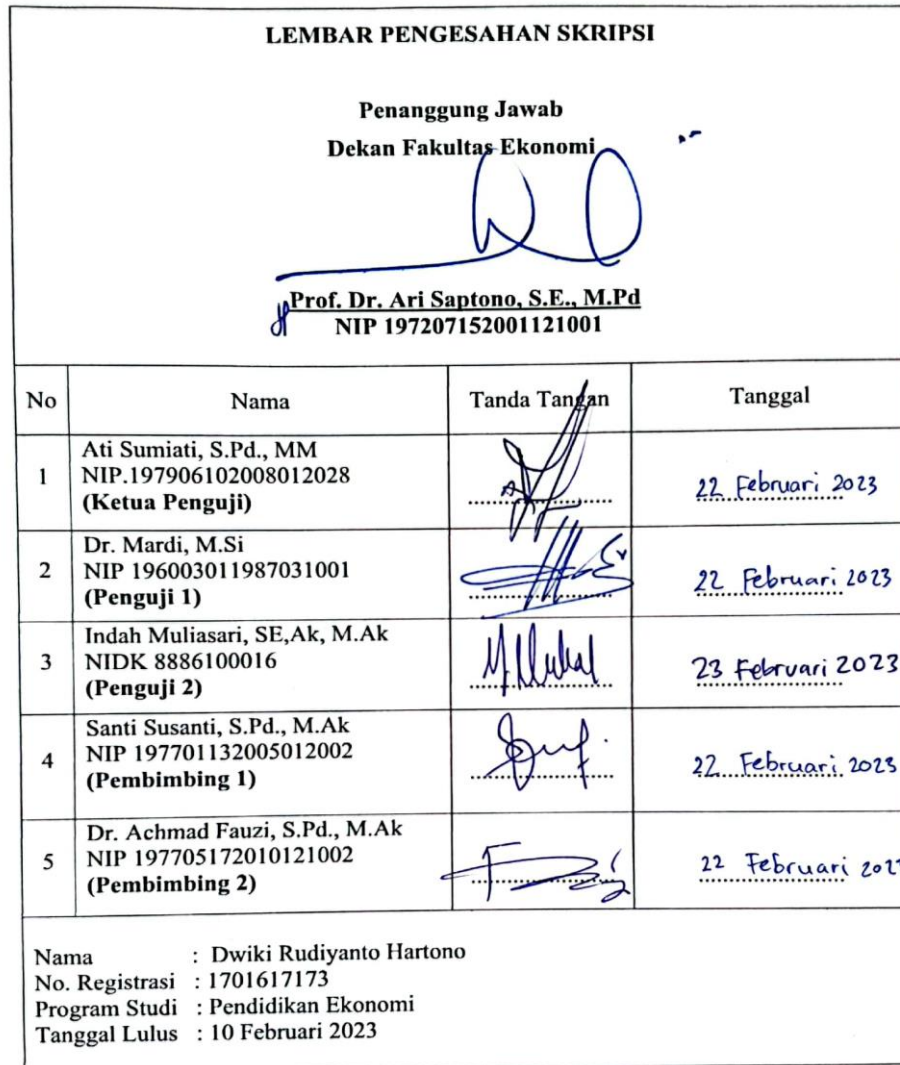 LEMBAR PENGESAHAN SKRIPSI
Penanggung Jawab
Dekan Fakultas Ekonomi
Prof. Dr. Ari Saptono, S.E., M.Pd
NIP 197207152001121001
No Nama Tanda Tangan Tanggal
1 Ati Sumiati, S.Pd., MM
NIP.197906102008012028
(Ketua Penguji)
22 Februari 2023
2 Dr. Mardi, M.Si
NIP 196003011987031001
(Penguji 1)
22 Februari 2023
3 Indah Muliasari, SE,Ak, M.Ak
NIDK 8886100016
(Penguji 2)
23 Februari 2023
4 Santi Susanti, S.Pd., M.Ak
NIP 197701132005012002
(Pembimbing 1)
22 Februari 2023
5 Dr. Achmad Fauzi, S.Pd., M.Ak
NIP 197705172010121002
(Pembimbing 2)
22 Februari
Nama : Dwiki Rudiyanto Hartono
No. Registrasi : 1701617173
Program Studi : Pendidikan Ekonomi
Tanggal Lulus : 10 Februari 2023